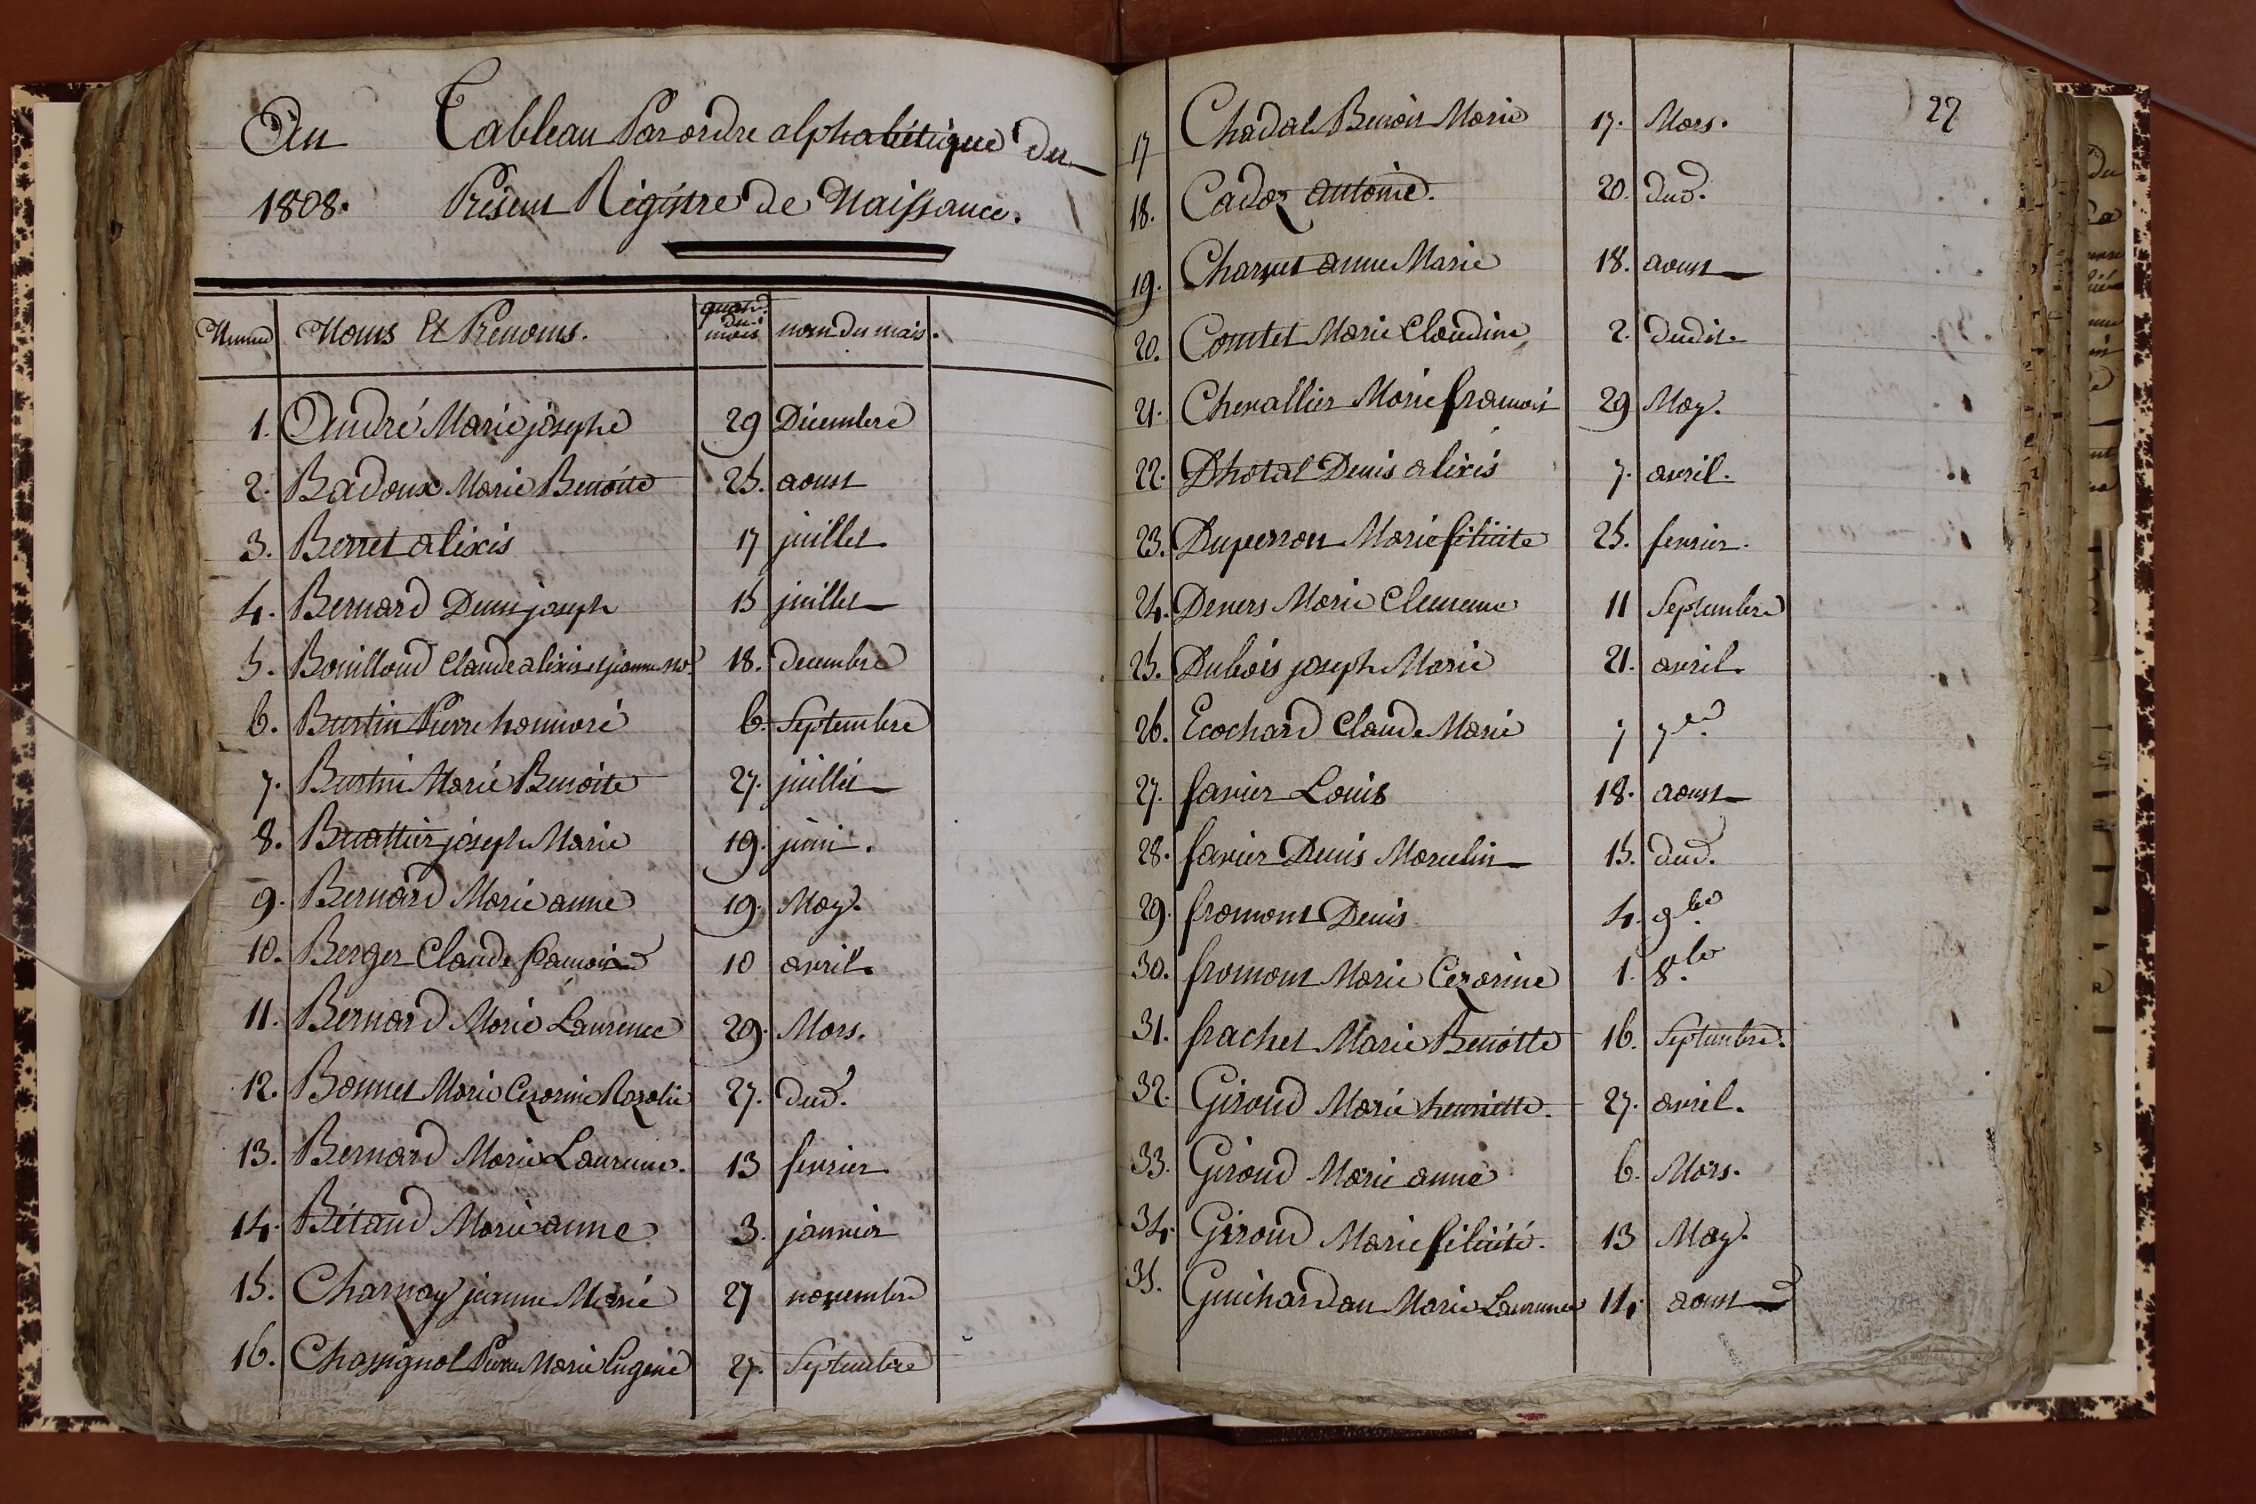 An Tableau Par ordre alphabétique du
1808. Présent Régistre de Naissance.
Numro Noms Et Prénoms. quant. du mois nom du mois.
1. André Marie josephe 29 Décembre
2. Badoux Marie Benoite 25. aoust
3. Berret alixis 17 juillet
4. Bernard Denis joseph 15 juillet
5. Bouilloud Claude alixis et jeanne 18. decembre
6. Burtin Pierre honnoré 6. Septembre
7. Burtin Marie Benoite 27. juillet
8. Buattier joseph Marie 19. juin.
9. Bernard Marie anne 19. May.
10. Berger Claude francois 10 avril.
11. Bernard Marie Laurence 29. Mars.
12. Bonnet Marie Cezarine Rozalie 27. dud.
13. Bernard Marie Laurence. 13 fevrier
14. Bétaud Marie anne 3. janvier
15. Charnay jeanne Marie 27 novembre
16. Chassignol Pierre Marie Eugene 27. Septembre
27
17 Chadal Benoit Marie 17. Mars.
18. Cadoz antoine. 20. dud.
19. Charvet anne Marie 18. aoust
20. Comtet Marie Claudine 2. dudit
21. Chevallier Marie francois 29 May.
22. Dhotal Denis alixis 7. avril.
23. Duperron Marie félicite 25. fevrier.
24. Deners Marie Clemence 11 Septembre
25. Dubois joseph Marie 21. avril.
26. Ecochard Claude Marie 7 7bre
27. favier Louis 18. aoust
28. favier Denis Marcelin 15. dud.
29. fromont Denis 4. 9bre
30. fromont Marie Cezarine 1. 8.bre
31. frachet Marie Benoitte 16. Septembre.
32. Giroud Marie henriette. 27. avril.
33. Giroud Marie anne 6. Mars.
34. Giroud Marie félicité. 13 May.
35. Guichardan Marie Laurence 14 aoust